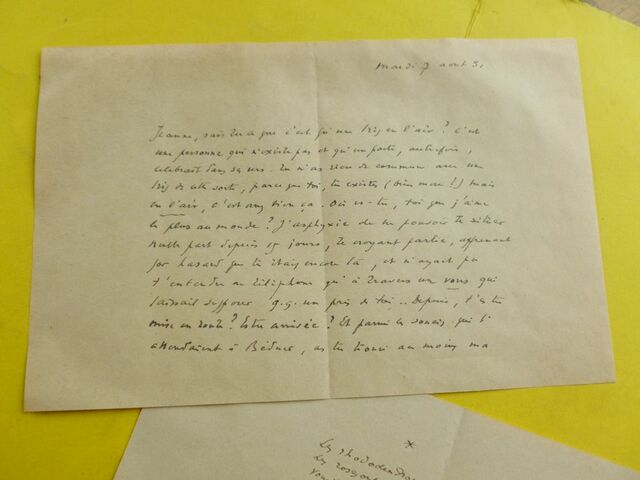 mardi 7 août 31
Jeanne, sais-tu ce que c'est qu'une Iris en l'air ? C'est
une personne qui n'existe pas et qu'un poète, autrefois,
célébrait dans ses vers. Tu n'as rien de commun avec une
Iris de cette sorte, parce que toi, tu existes (bien mieux !) mais
en l'air, c'est assez bien ça. Où es-tu, toi que j'aime
le plus au monde ? J'asphyxie de ne pouvoir te situer
nulle part depuis 15 jours, te croyant partie, apprenant
par hasard que tu étais encore là, et n'ayant pu
t'entendre au téléphone qu'à travers un vous qui
laissait supposer q.q. un près de toi.. Depuis, t'es-tu
mise en route ? Es-tu arrivée ? Et parmi les soucis qui t'
attendaient à as-tu trouvé au moins ma
*
Les rhododendr
Les